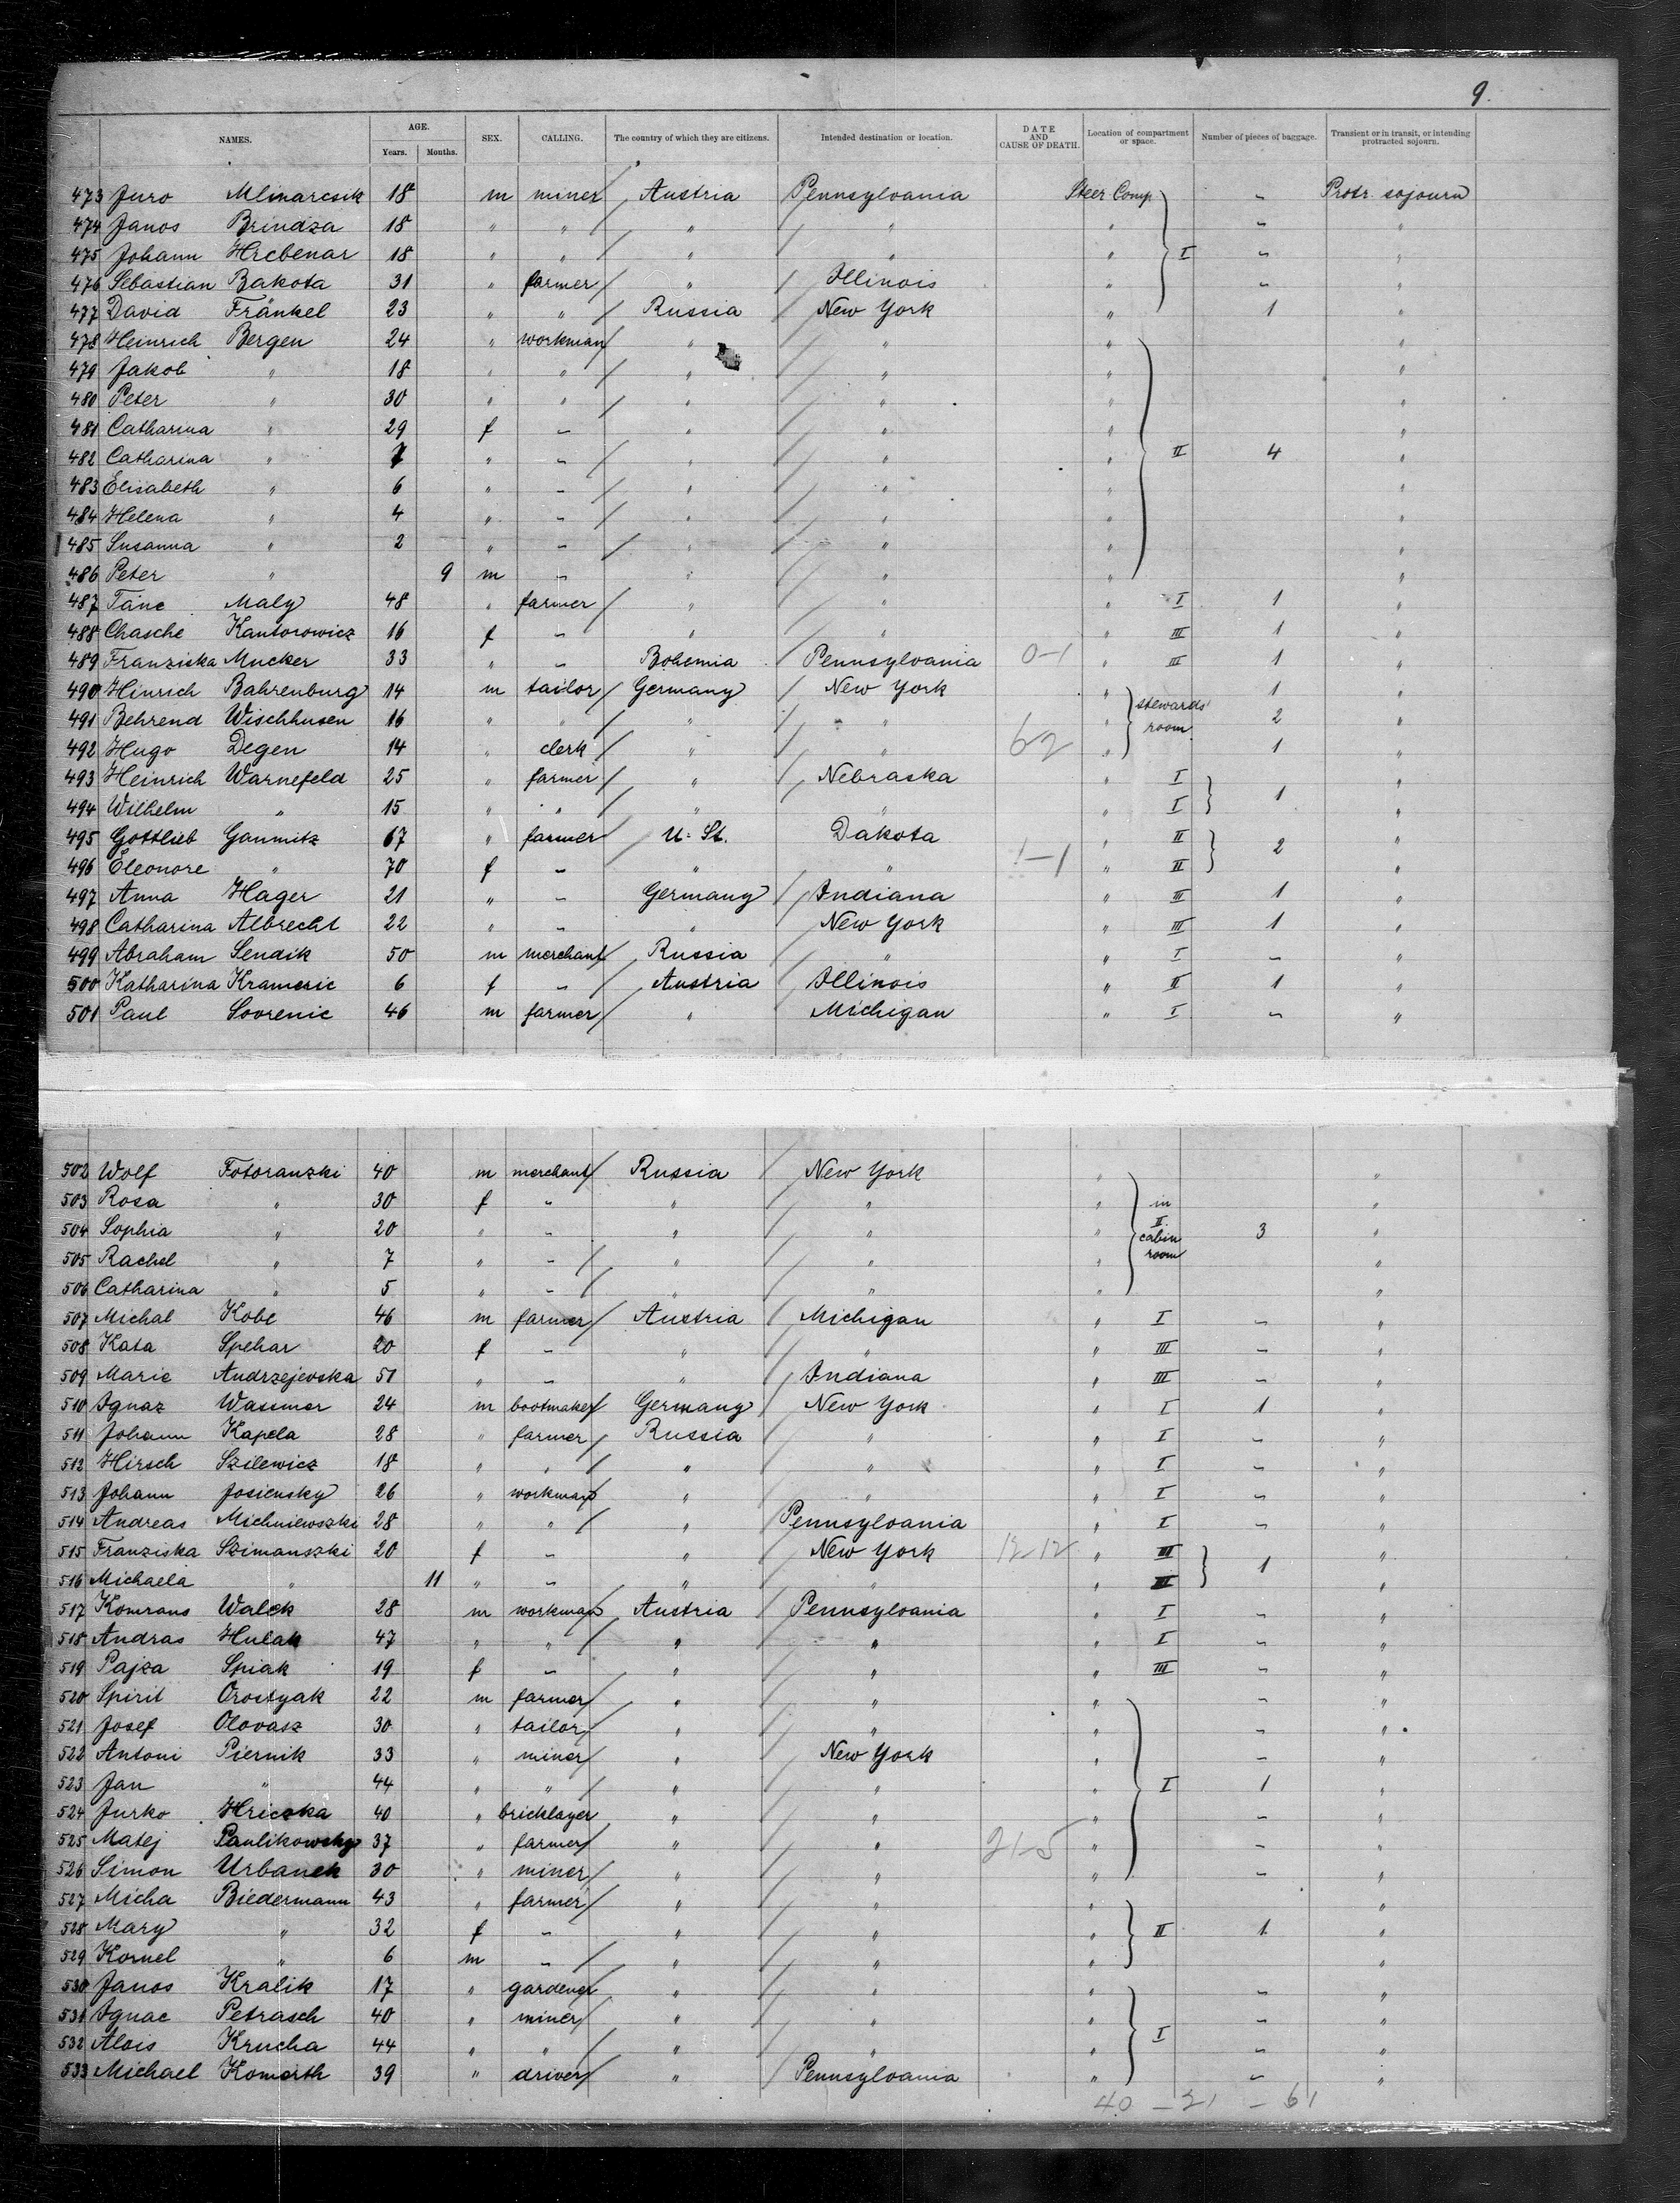 9.
NAMES. AGE. Years. Months. SEX. CALLING. The country of which they are citizens. Intended destination or location. DATE AND CAUSE OF DEATH. Location of compartment or space. Number of pieces of baggage. Transient or in transit, or intending protracted sojourn.
473 Juro Mlinarcsik 18 m miner Austria Pennsylvania Steer Comp. – Protr. sojourn
474 Janos Brindza 18 " " " " " – "
475 Johann Hrebenar 18 " " " " " I – "
476 Sebastian Bakota 31 " farmer " Illinois " – "
477 David Fränkel 23 " " Russia New York " 1 "
478 Heinrich Bergen 24 " workman " " " "
479 Jakob " 18 " " " " " "
480 Peter " 30 " " " " " "
481 Catharina " 29 f – " " " "
482 Catharina " 7 " – " " " II 4 "
483 Elisabeth " 6 " – " " " "
484 Helena " 4 " – " " " "
485 Susanna " 2 " – " " " "
486 Peter " 9 m – " " " "
487 Täne Maly 48 " farmer " " " I 1 "
488 Chasche Kantorowicz 16 f – " " " III 1 "
489 Franziska Mucker 33 " – Bohemia Pennsylvania 0–1 " III 1 "
490 Hinrich Bahrenburg 14 m tailor Germany New York " stewards' room 1 "
491 Behrend Wischhusen 16 " " " " " 2 "
492 Hugo Degen 14 " clerk " " 6–2 " 1 "
493 Heinrich Warnefeld 25 " farmer " Nebraska " I 1 "
494 Wilhelm " 15 " " " " " I "
495 Gottlieb Gaumitz 67 " farmer U. St. Dakota " II 2 "
496 Eleonore " 70 f – " " 1–1 " II "
497 Anna Hager 21 " – Germany Indiana " III 1 "
498 Catharina Albrecht 22 " – " New York " III 1 "
499 Abraham Sendik 50 m merchant Russia " " I – "
500 Katharina Krameric 6 f – Austria Illinois " II 1 "
501 Paul Sovrenic 46 m farmer " Michigan " I – "
502 Wolf Fotoranzki 40 m merchant Russia New York " "
503 Rosa " 30 f – " " " in "
504 Sophia " 20 " – " " " II. cabin 3 "
505 Rachel " 7 " – " " " room "
506 Catharina " 5 " – " " " "
507 Michal Kobe 46 m farmer Austria Michigan " I – "
508 Kata Spehar 20 f – " " " III – "
509 Marie Andrzejevska 51 " – " Indiana " III – "
510 Ignaz Wassmer 24 m bootmaker Germany New York " I 1 "
511 Johann Kapela 28 " farmer Russia " " I – "
512 Hirsch Szilewicz 18 " " " " " I – "
513 Johann Josiensky 26 " workman " " " I – "
514 Andreas Michniewszki 28 " " " Pennsylvania " I – "
515 Franziska Szimanszki 20 f – " New York 12–12 " III 1 "
516 Michaela " 11 " – " " " III "
517 Komrans Walek 28 m workman Austria Pennsylvania " I – "
518 Andras Hulak 47 " " " " " I – "
519 Pajza Spiak 19 f – " " " III – "
520 Spirit Orostyak 22 m farmer " " " – "
521 Josef Olovasz 30 " tailor " " " – "
522 Antoni Piernik 33 " miner " New York " – "
523 Jan " 44 " " " " " I 1 "
524 Jurko Hriczka 40 " bricklayer " " " – "
525 Matej Paulikowsky 37 " farmer " " 21–5 " – "
526 Simon Urbanek 30 " miner " " " – "
527 Micha Biedermann 43 " farmer " " " "
528 Mary " 32 f – " " " II 1 "
529 Kornel " 6 m – " " " "
530 Janos Kralik 17 " gardener " " " – "
531 Ignac Petrasch 40 " miner " " " – "
532 Alois Krucha 44 " " " " " I – "
533 Michael Komorth 39 " driver " Pennsylvania " – "
40 – 21 – 61